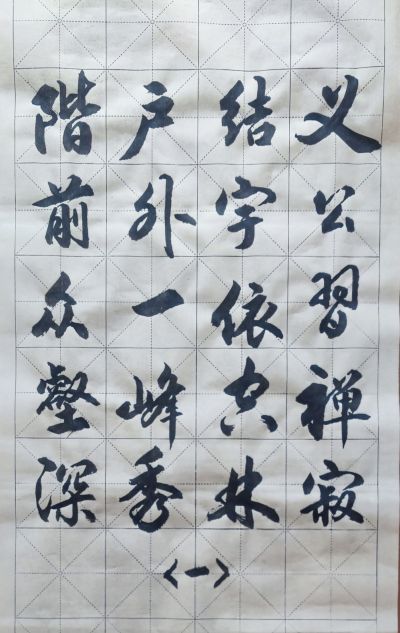 义公習禅寂
结宇依空林
户外一峰秀
階前众壑深
<一>